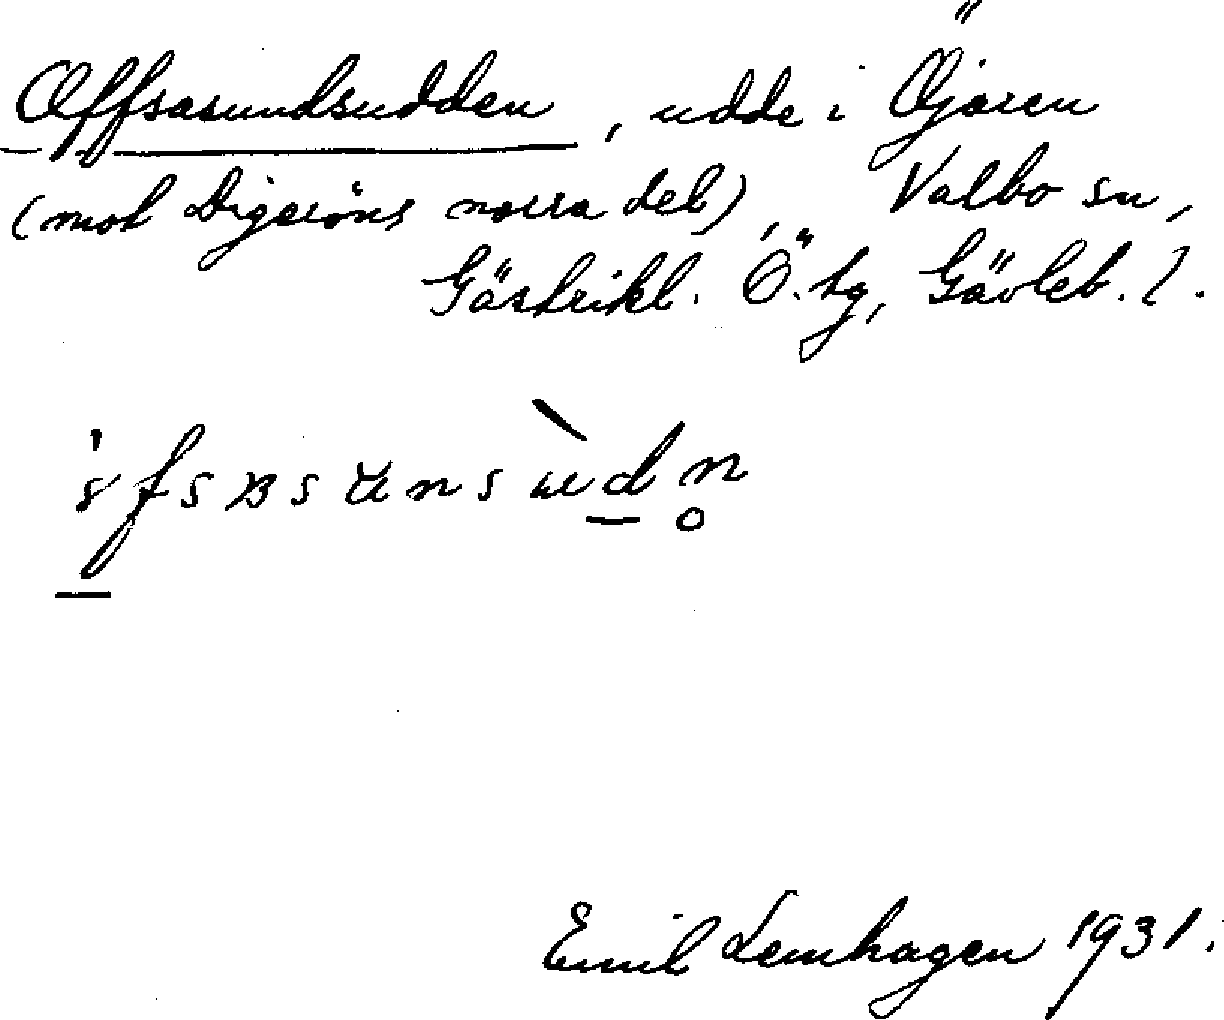 Offsasundsudden, udde i Öjaren
(mot Digeröns norra del), Valbo sn,
Gästrikl. Ö. tg, Gävleb. l.
Emil Lemhagen 1931.